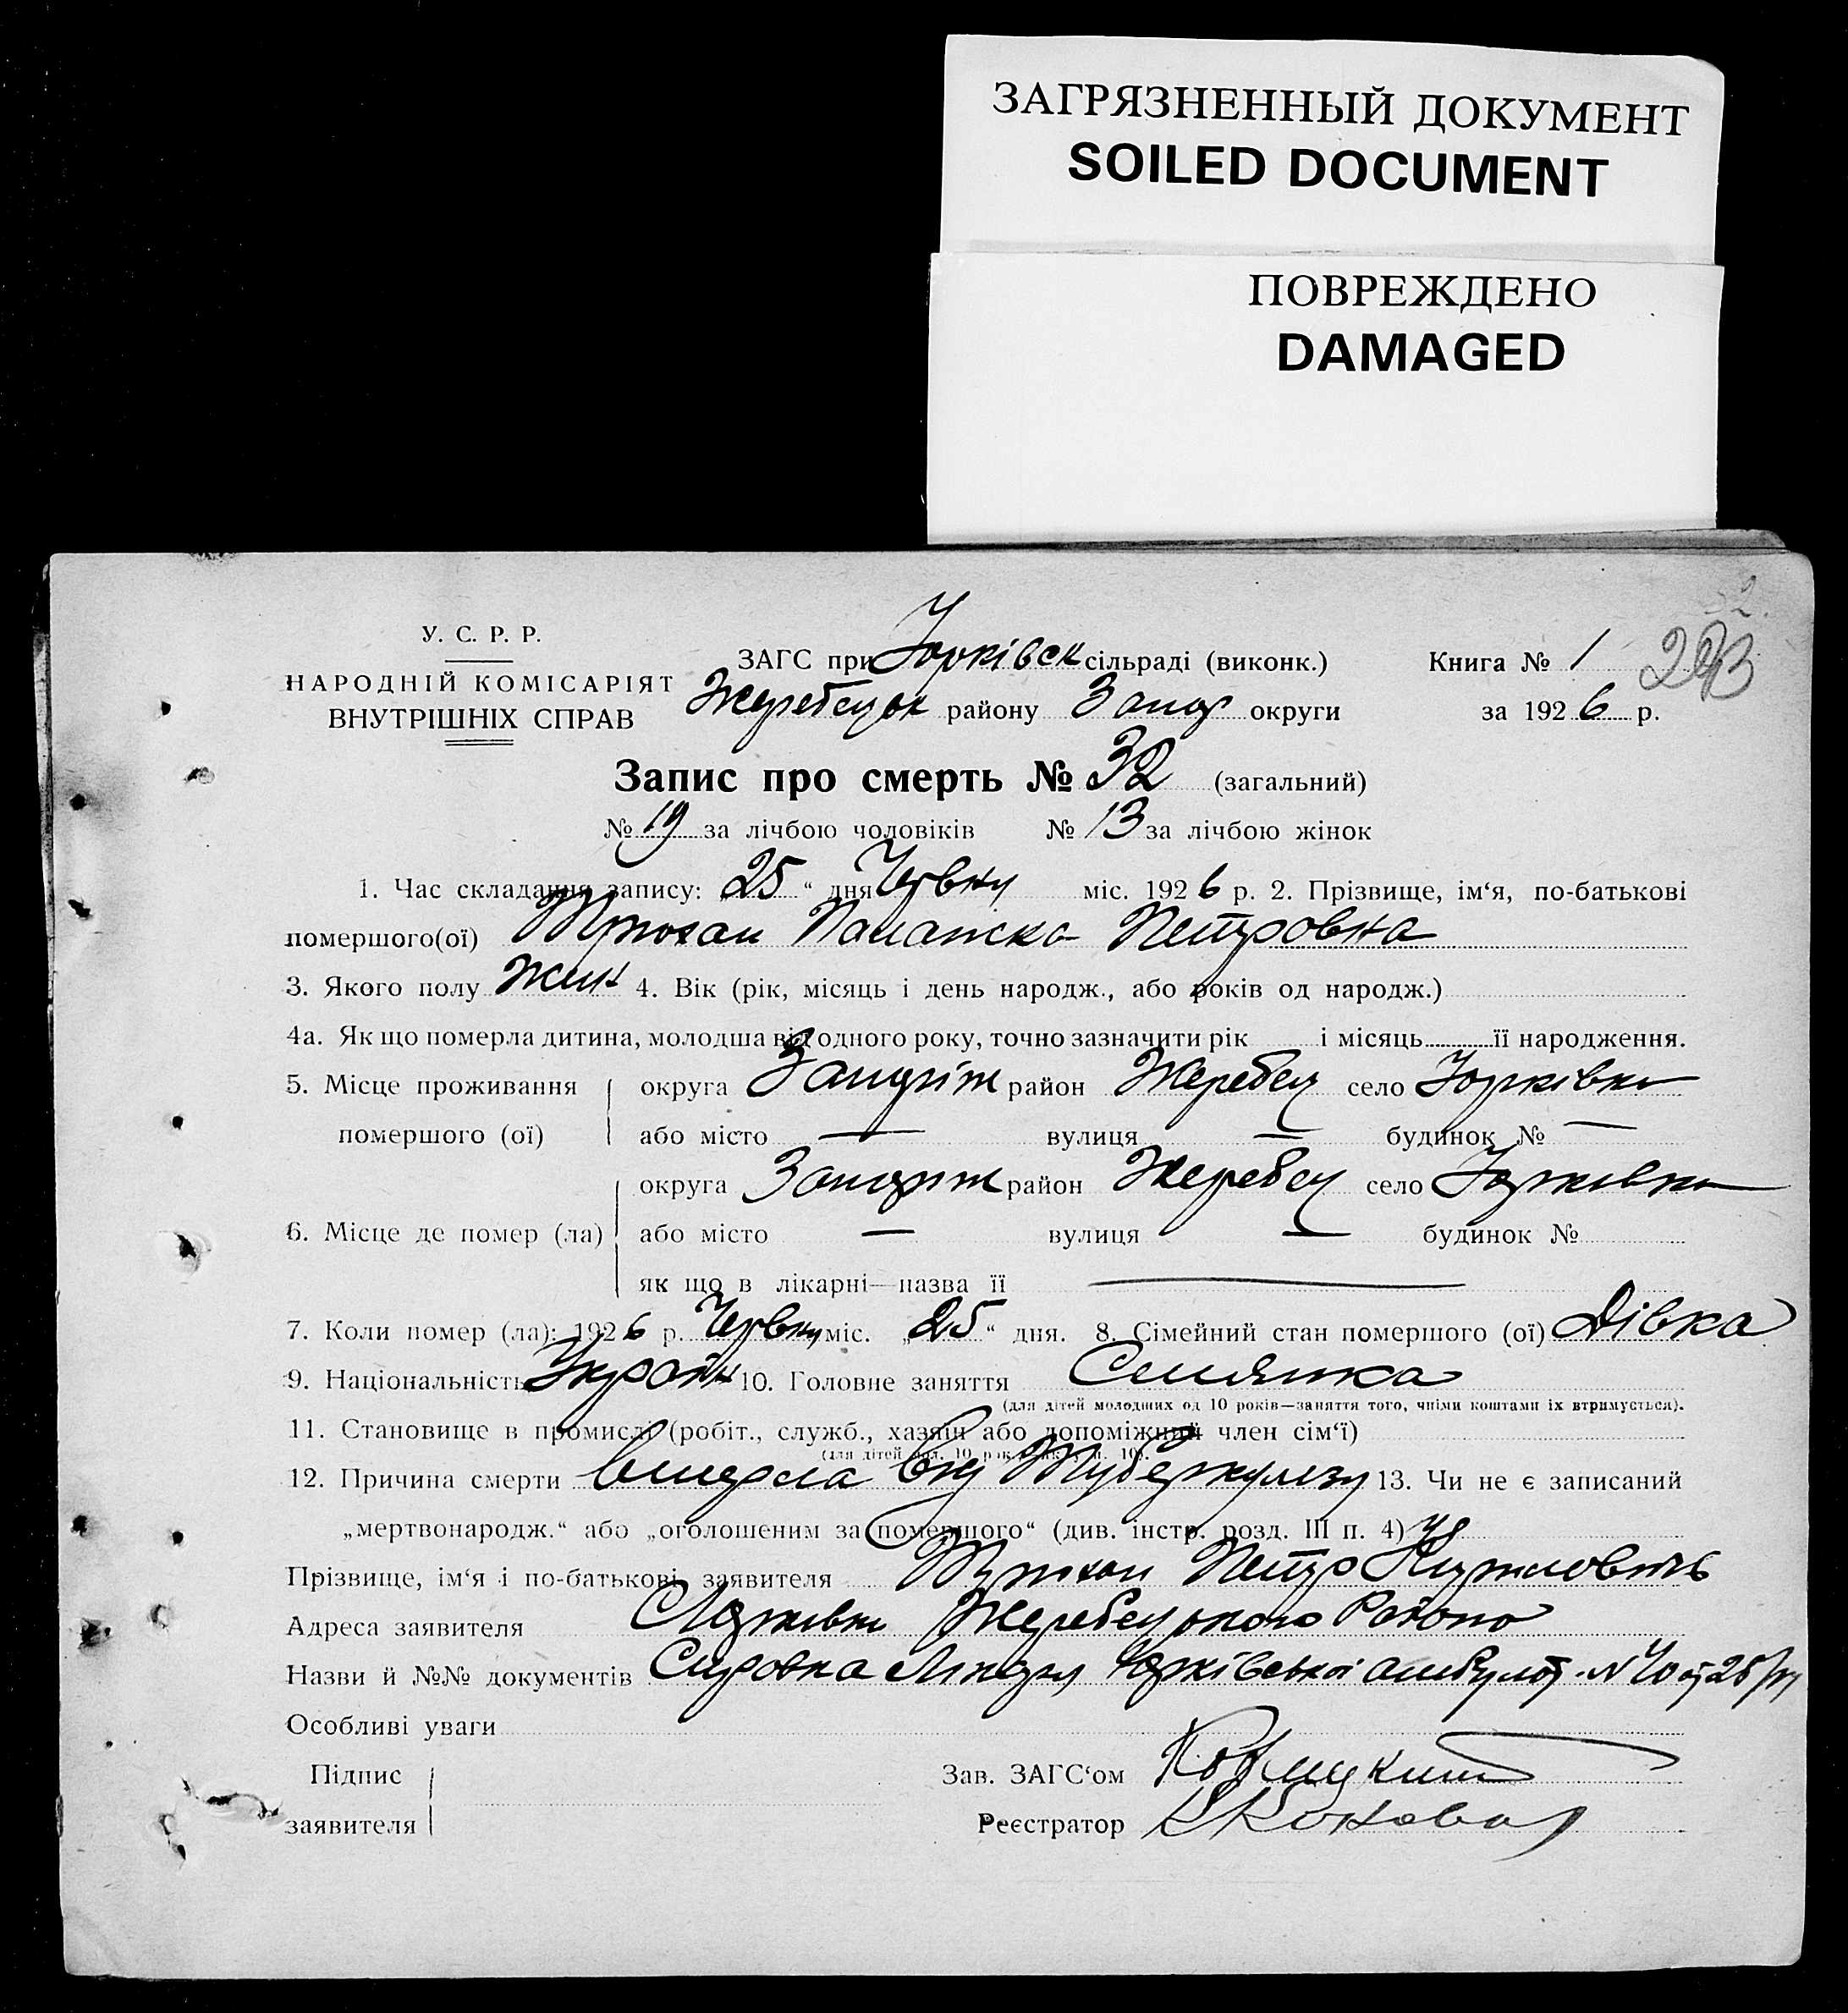 ЗАГРЯЗНЕННЫЙ ДОКУМЕНТ
SOILED DOCUMENT
ПОВРЕЖДЕНО
DAMAGED
У. С. Р. Р.
НАРОДНІЙ КОМІСАРІЯТ
ВНУТРІШНІХ СПРАВ
ЗАГС при Юрківск сільраді (виконк.)
Книга № 1
району Запор округи
за 1926 р.
Запис про смерть № 32 (загальний)
№ 19 за лічбою чоловіків № 13 за лічбою жінок
1. Час складання запису: „25“ дня Червня міс. 1926 р. 2. Прізвище, ім‘я, по-батькові
помершого(ої) Петровна
3. Якого полу Жин 4. Вік (рік, місяць і день народж., або років од народж.)
4а. Як що померла дитина, молодша від одного року, точно зазначити рік і місяць її народження.
5. Місце проживання
помершого (ої)
округа Запоріж район Жеребец село Юрківка
або місто — вулиця — будинок № —
6. Місце де помер (ла)
округа Запоріж район Жеребец село Юрківка
або місто — вулиця — будинок №
як що в лікарні—назва її —
7. Коли помер (ла): 1926 р. Червня міс. „25“ дня. 8. Сімейний стан помершого (ої) Дівка
9. Національність Україн 10. Головне заняття Селянка
(для дітей молодших од 10 років—заняття того, чиїми коштами їх втримується).
11. Становище в промислі (робіт., служб., хазяїн або допоміжний член сім‘ї)
12. Причина смерти вмерла від Туберкульозу 13. Чи не є записаний
„мертвонародж.“ або „оголошеним за помершого“ (див. інстр. розд. III п. 4)
Прізвище, ім‘я і по-батькові заявителя Петро
Адреса заявителя Юрківка Району
Назви й №№ документів Юрківської амбулат. №
Особливі уваги
Підпис
заявителя
Зав. ЗАГС‘ом
Реєстратор